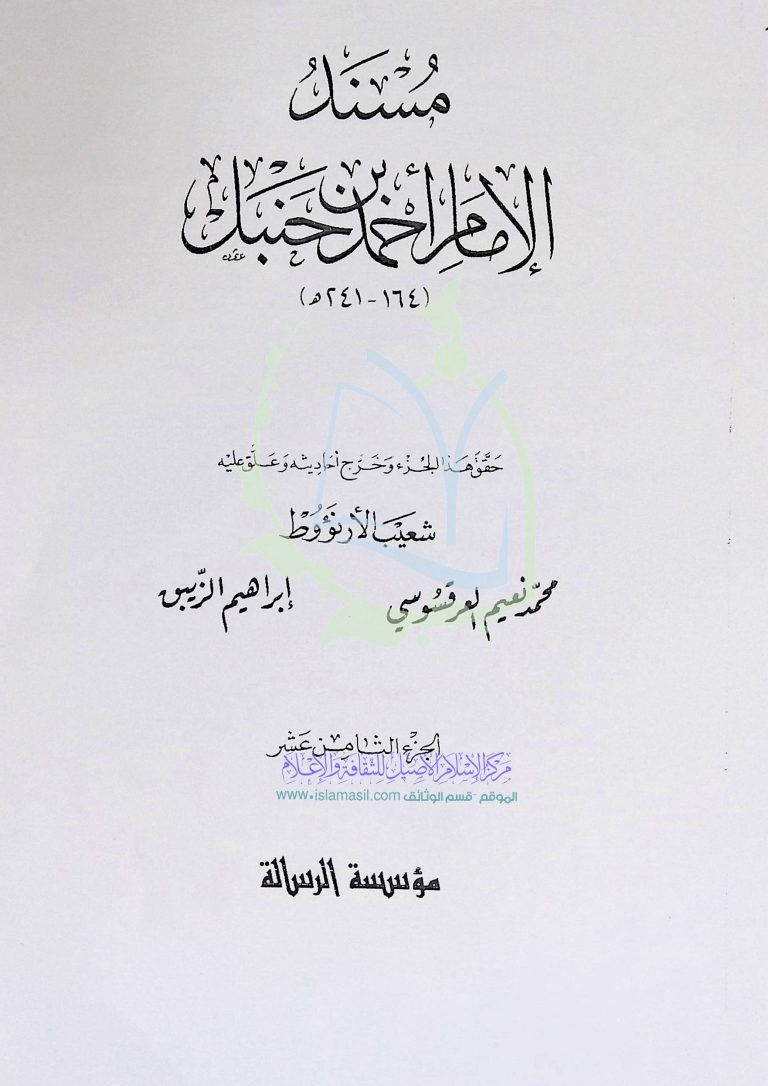 مُسْنَدُ
الإمَامِ أحْمَد بن حَنبَل
(١٦٤ - ٢٤١ ه)
حَقَّقَ هَذا الجُزء وَخَرَّج أحَاديثه وَعَلَّق عَليْه
شعَيْب الأرنَؤُوطْ
محمّد نعيم العرقسُوسي    إبراهيم الزّيبق
الجزء الثامِن عَشَر
مركز الإسلام الأصيل للثقافة والإعلام
الموقع - قسم الوثائق www.islamasil.com
مؤسسة الرسالة